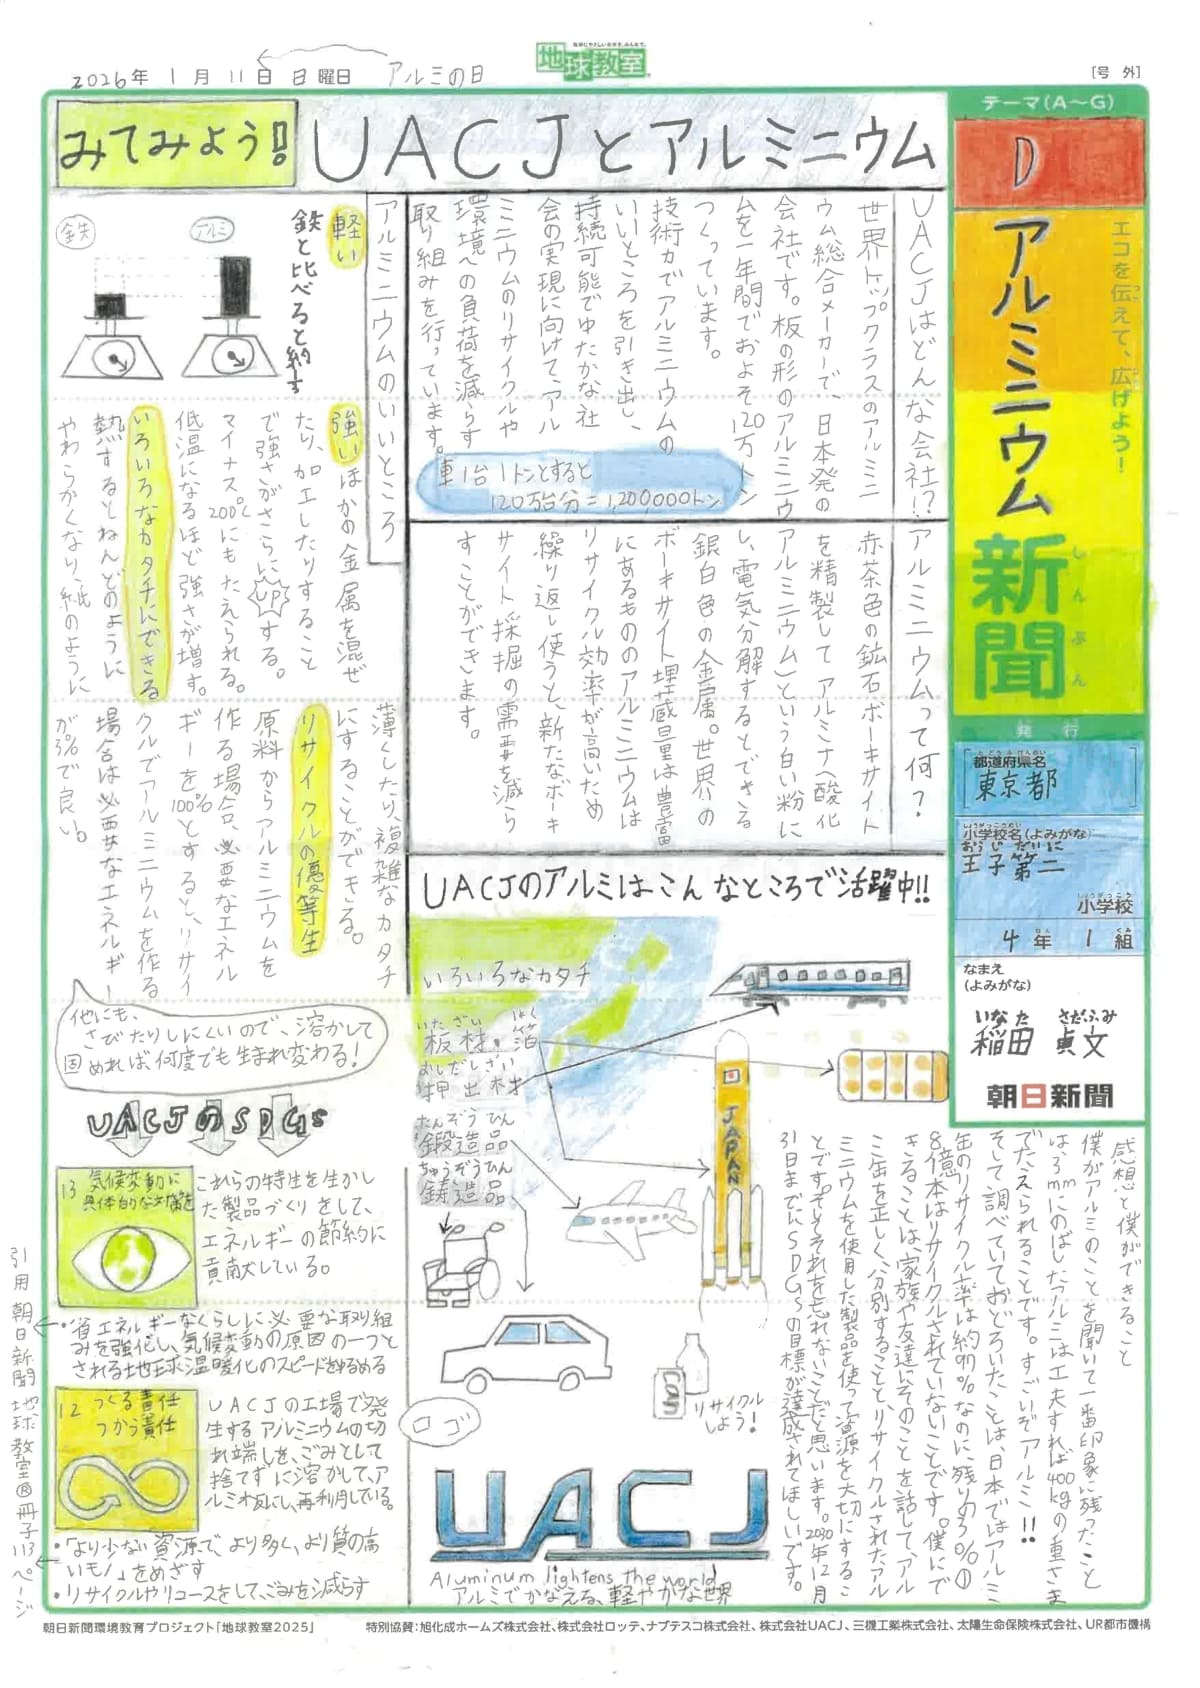 2026年 1月 11日 日曜日 アルミの日
地球にやさしい未来を、みんなで。
地球教室
[号 外]
テーマ(A〜G)
D
エコを伝えて、広げよう!
アルミニウム
新聞
しんぶん
発行
都道府県名
とどうふけんめい
東京都
小学校名(よみがな)
しょうがっこうめい
おうじ だいに
王子第二
小学校
しょうがっこう
4年1組
なまえ
(よみがな)
いなた さだふみ
稲田 貞文
朝日新聞
みてみよう!
UACJとアルミニウム
UACJはどんな会社!?
世界トップクラスのアルミニ
ウム総合メーカーで、日本発の
会社です。板の形のアルミニウ
ムを一年間でおよそ120万トン
つくっています。
技術力でアルミニウムの
いいところを引き出し、
持続可能でゆたかな社
会の実現に向けて、アル
ミニウムのリサイクルや
環境への負荷を減らす
取り組みを行っています。
車1台1トンとすると
120万台分=1,200,000トン
アルミニウムって何?
赤茶色の鉱石ボーキサイト
を精製してアルミナ(酸化
アルミニウム)という白い粉に
し、電気分解するとできる
銀白色の金属。世界の
ボーキサイト埋蔵量は豊富
にあるもののアルミニウムは
リサイクル効率が高いため
繰り返し使うと、新たなボーキ
サイト採掘の需要を減ら
すことができます。
アルミニウムのいいところ
軽い
鉄と比べると約⅓
鉄
アルミ
強い ほかの金属を混ぜ
たり、加工したりすること
で強さがさらにUPする。
マイナス200℃にもたえられる。
低温になるほど強さが増す。
いろいろなカタチにできる
熱するとねんどのように
やわらかくなり、紙のように
薄くしたり、複雑なカタチ
にすることができる。
リサイクルの優等生
原料からアルミニウムを
作る場合、必要なエネル
ギーを100%とすると、リサイ
クルでアルミニウムを作る
場合は必要なエネルギー
が3%で良い。
他にも、
さびたりしにくいので、溶かして
固めれば、何度でも生まれ変わる!
UACJのSDGs
13 気候変動に
具体的な対策を
これらの特生を生かし
た製品づくりをして、
エネルギーの節約に
貢献している。
・省エネルギーなくらしに必要な取り組
みを強化し、気候変動の原因の一つと
される地球温暖化のスピードをゆるめる
12 つくる責任
つかう責任
UACJの工場で発
生するアルミニウムの切
れ端しを、ごみとして
捨てずに溶かして、ア
ルミ板にし、再利用している。
・「より少ない資源で、より多く、より質の高
いモノ」をめざす
・リサイクルやリユースをして、ごみを減らす
引用 朝日新聞 地球教室 冊子 113ページ
UACJのアルミはこんなところで活躍中!!
いろいろなカタチ
いたざい はく
板材・箔
おしだしざい
押出材
たんぞうひん
鍛造品
ちゅうぞうひん
鋳造品
JAPAN
Can
リサイクル
しよう!
ロゴ
UACJ
Aluminum lightens the world
アルミでかなえる、軽やかな世界
感想と僕ができること
僕がアルミのことを聞いて一番印象に残ったこと
は、3mmにのばしたアルミは工夫すれば400kgの重さま
でたえられることです。すごいぞアルミ!!
そして調べていておどろいたことは、日本ではアルミ
缶のリサイクル率は約97%なのに、残りの3%の
8億本はリサイクルされていないことです。僕にで
きることは、家族や友達にそのことを話して、アル
ミ缶を正しく分別することと、リサイクルされたアル
ミニウムを使用した製品を使って資源を大切にするこ
とです。そしてそれを忘れないことだと思います。2030年12月
31日までにSDGsの目標が達成されてほしいです。
朝日新聞環境教育プロジェクト「地球教室2025」
特別協賛:旭化成ホームズ株式会社、株式会社ロッテ、ナブテスコ株式会社、株式会社UACJ、三機工業株式会社、太陽生命保険株式会社、UR都市機構